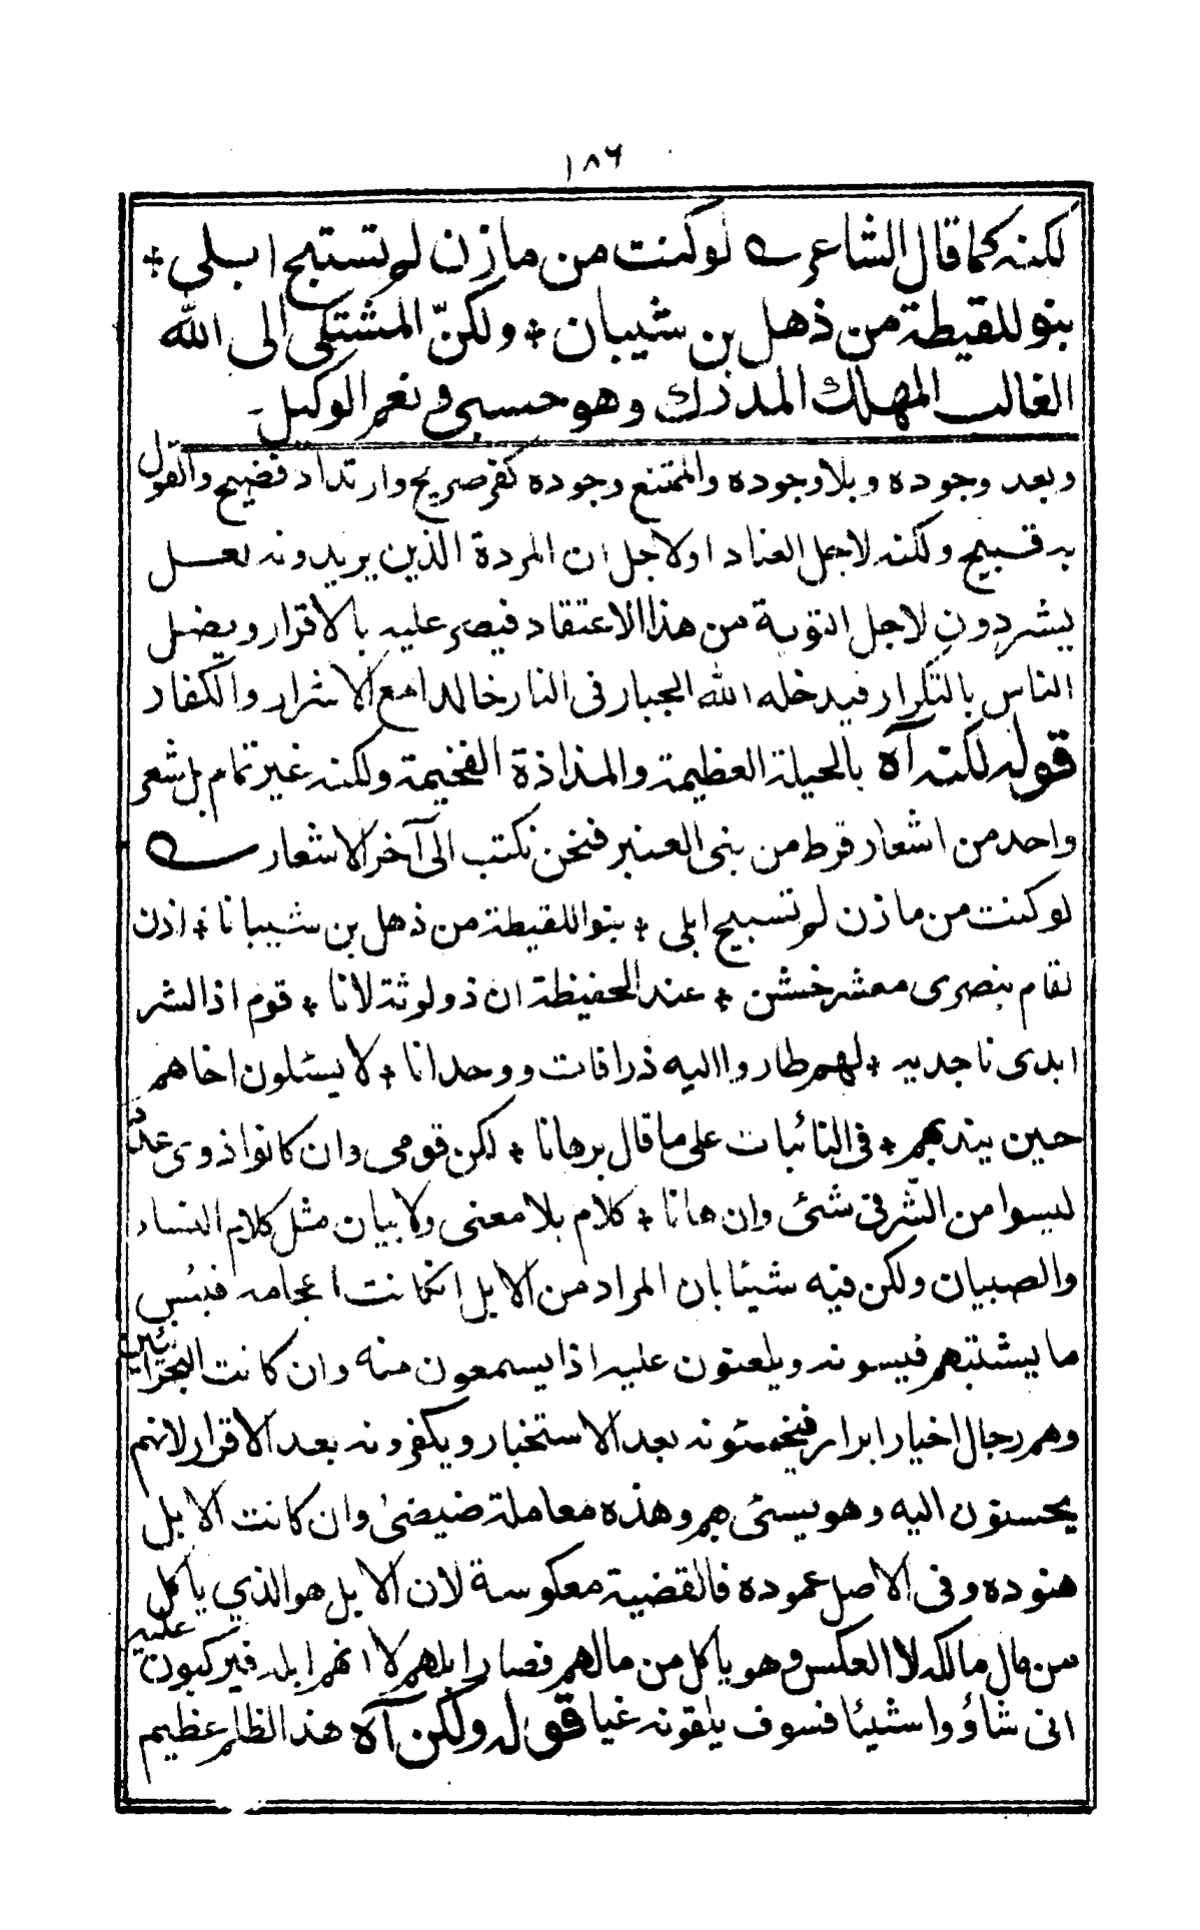 ١٨٦
لكنه كما قال الشاعر لو كنت من مازن لم تستبح ابلى
بنو للقيطة من ذهل بن شيبان ولكنّ المشتكى الى الله
الغالب المهلك المدرك وهو حسبى و نعم الوكيل
وبعد وجوده وبلا وجوده والممتنع وجوده كفر صريح وارتداد فضيح والقول
به قبيح ولكنه لاجل العناد او لاجل ان المردة الذين يريدونه لعل
يشردون لاجل التوبة من هذا الاعتقاد فيصر عليه بالاقرار ويضل
الناس بالتكرار فيدخله الله الجبار فى النار خالدا مع الاشرار والكفار
قوله لكنه آه بالحيلة العظيمة والمذاذة الفخيمة ولكنه غير تمام بل شعر
واحد من اشعار قرط من بنى العنبر فنحن نكتب الى آخر الاشعار
لو كنت من مازن لم تسبيح ابلى بنو اللقيطة من ذهل بن شيبانا اذن
لقام بنصرى معشر خشن عند الحفيظة ان ذو لوثة لانا قوم اذا الشر
ابدى ناجديه لهم طاروا اليه ذرافات ووحدانا لا يسئلون اخاهم
حين يندبهم فى النائبات على ما قال برهانا لكن قومى وان كانوا ذوى عدد
ليسوا من الشّر فى شئ وان هانا كلام بلا معنى ولا بيان مثل كلام النساء
والصبيان ولكن فيه شيئا بان المراد من الابل انكانت اعجامه فبئس
ما يشتبهم فيسونه ويلعنون عليه اذا يسمعون منه وان كانت البحرائين
وهم رجال اخيار ابرار فيخسئونه بعد الاستخبار ويكفرونه بعد الاقرار لانهم
يحسنون اليه وهو يسئى بهم وهذه معاملة ضيضى وان كانت الابل
هنوده وفى الاصل عموده فالقضية معكوسة لان الابل هو الذي ياكل
من مال مالكه لا العكس وهو ياكل من مالهم فصار ابلهم لا انهم ابله فيركبون عليه
انى شاؤوا شيئا فسوف يلقونه غيا قوله ولكن آه هذا الظلم عظيم